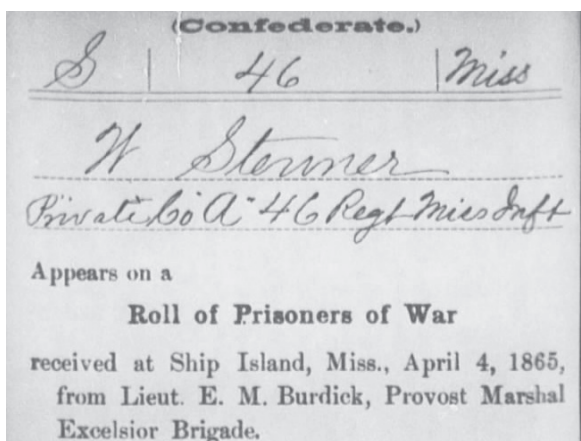 (Confederate.)
S | 46 | Miss
W Stenner
Private Co "A" 46 Regt Miss Inft
Appears on a
Roll of Prisoners of War
received at Ship Island, Miss., April 4, 1865,
from Lieut. E. M. Burdick, Provost Marshal
Excelsior Brigade.